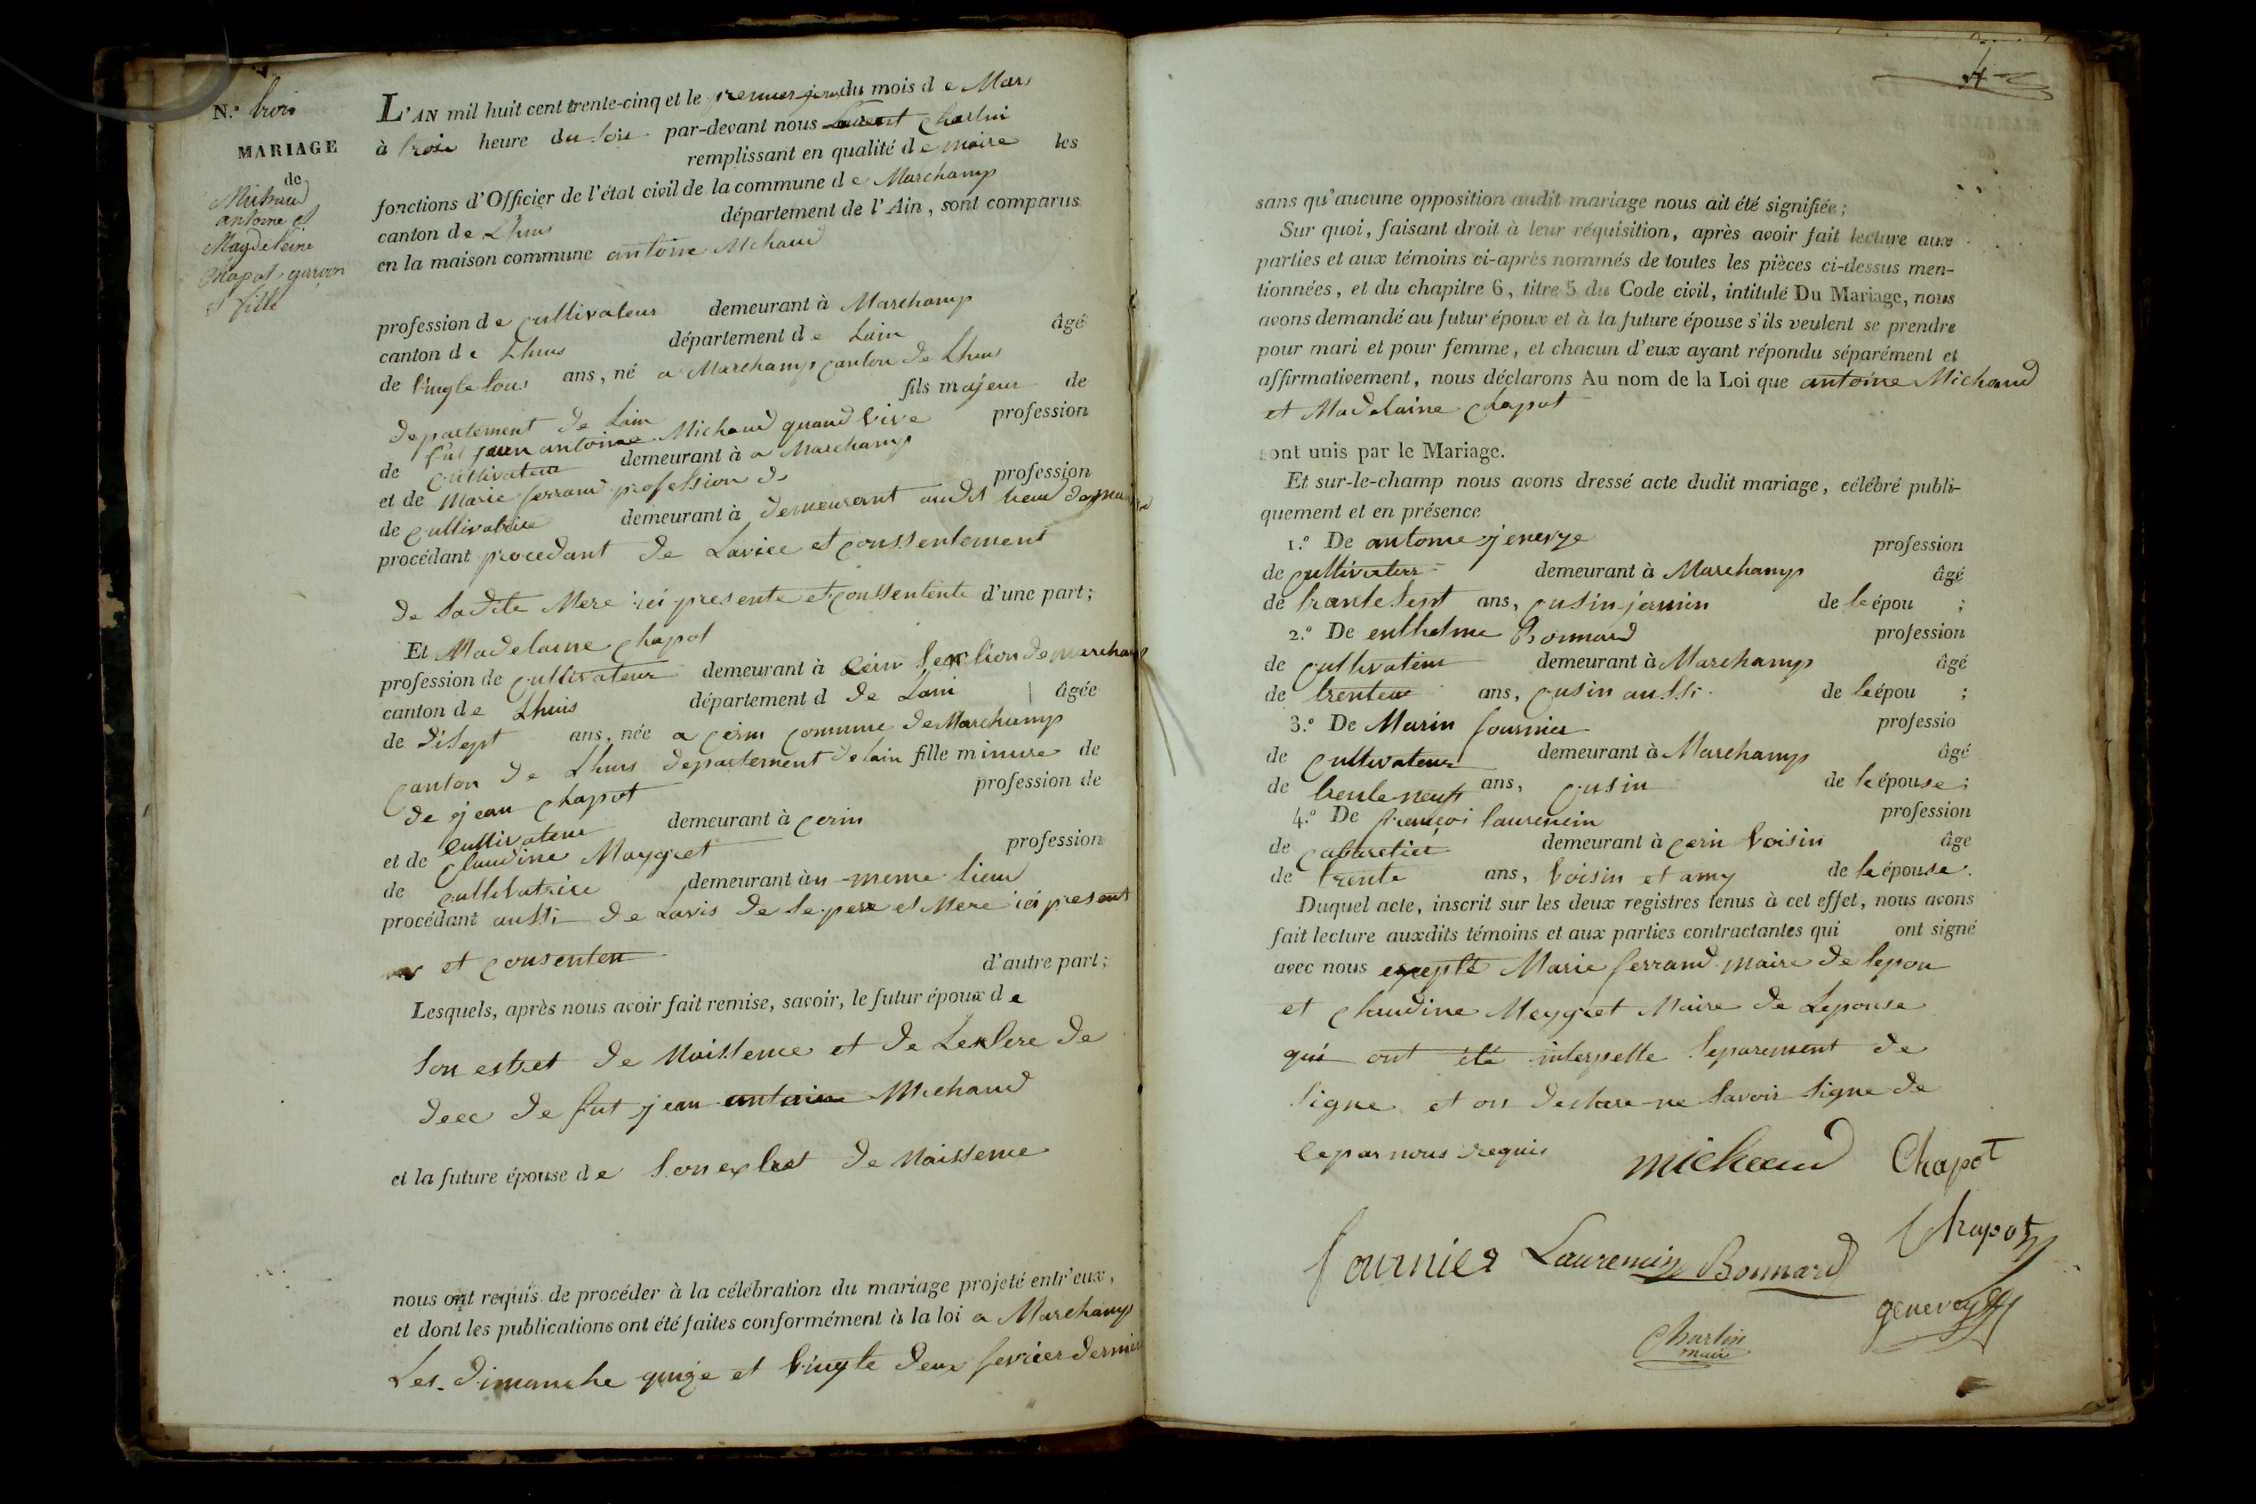 N.º trois
MARIAGE
de
Michaud
antoine et
Magdeleine
Chapot garçon
et fille
L'AN mil huit cent trente-cinq et le premier jour du mois de Mars
à trois heure du soir par-devant nous Charlin
remplissant en qualité de maire les
fonctions d'Officier de l'état civil de la commune de Marchamp
canton de Lhuis département de l'Ain, sont comparus
en la maison commune antoine Michaud
profession de cultivateur demeurant à Marchamp
canton de Lhuis département de Lain âgé
de vingte ans, né a Marchamp canton de Lhuis
departement de Lain fils majeur de
fut jean antoine Michaud quand vive profession
de cultivateur demeurant à a Marchamp
et de Marie ferrand profession de profession
de cultivatrice demeurant à demeurant audit lieu de
procédant procedant de Lavice et conssentement
de sadite Mere ici presente et conssentente d'une part;
Et Madelaine Chapot
profession de cultivateur demeurant à Cerin section de marchamp
canton de Lhuis département d de Lain âgée
de disept ans, née a Cerin commune de Marchamp
canton de Lhuis departement de lain fille minure de
de jean Chapot profession de
cultivateur demeurant à cerin
et de Claudine Maygret profession
de cultivatrice demeurant àu meme lieud
procédant aussi de Lavis de se pere et Mere ici present
et consenten d'autre part;
Lesquels, après nous avoir fait remise, savoir, le futur époux de
son estret de Naissence et de Lexsere de
dece de fut jean antoine Michaud
et la future épouse de son extret de Naissence
nous ont requis de procéder à la célébration du mariage projeté entr'eux,
et dont les publications ont été faites conformément à la loi a Marchamp
Les dimanche quinze et vingte deux fevrier dernier
4
sans qu'aucune opposition audit mariage nous ait été signifiée;
Sur quoi, faisant droit à leur réquisition, après avoir fait lecture aux
parties et aux témoins ci-après nommés de toutes les pièces ci-dessus men-
tionnées, et du chapitre 6, titre 5 du Code civil, intitulé Du Mariage, nous
avons demandé au futur époux et à la future épouse s'ils veulent se prendre
pour mari et pour femme, et chacun d'eux ayant répondu séparément et
affirmativement, nous déclarons Au nom de la Loi que antoine Michaud
et Madelaine Chapot
sont unis par le Mariage.
Et sur-le-champ nous avons dressé acte dudit mariage, célébré publi-
quement et en présence
1.º De antoine jenevye profession
de cultivateur demeurant à Marchamp âgé
de trante sept ans, cusin jermin de le épou ;
2.º De enthelme Bonnard profession
de cultivateur demeurant à Marchamp âgé
de ans, cusin aussi de le épou ;
3.º De Marin fournier professio
de cultivateur demeurant à Marchamp âgé
de trente neuf ans, cusin de le épouse;
4.º De françoi laurencin profession
de cabaretier demeurant à cerin voisin âge
de trente ans, voisin et amy de le épouse.
Duquel acte, inscrit sur les deux registres tenus à cet effet, nous avons
fait lecture auxdits témoins et aux parties contractantes qui ont signé
avec nous excepté Marie ferrand maire de lepou
et Claudine Meygret Maire de Lepouse
qui ont été interpelle separement de
signe et on declare ne savoir signe de
ce par nous requis
michaud Chapot
Chapot
fournier Laurencin Bonnard
genevey
Charlin
maire